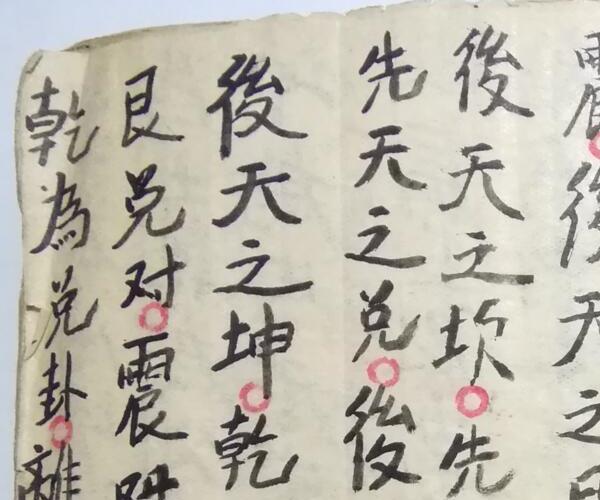 震後天之
後天之坎先
先天之兑後
後天之坤乾
艮兑对震
乾為兑卦離